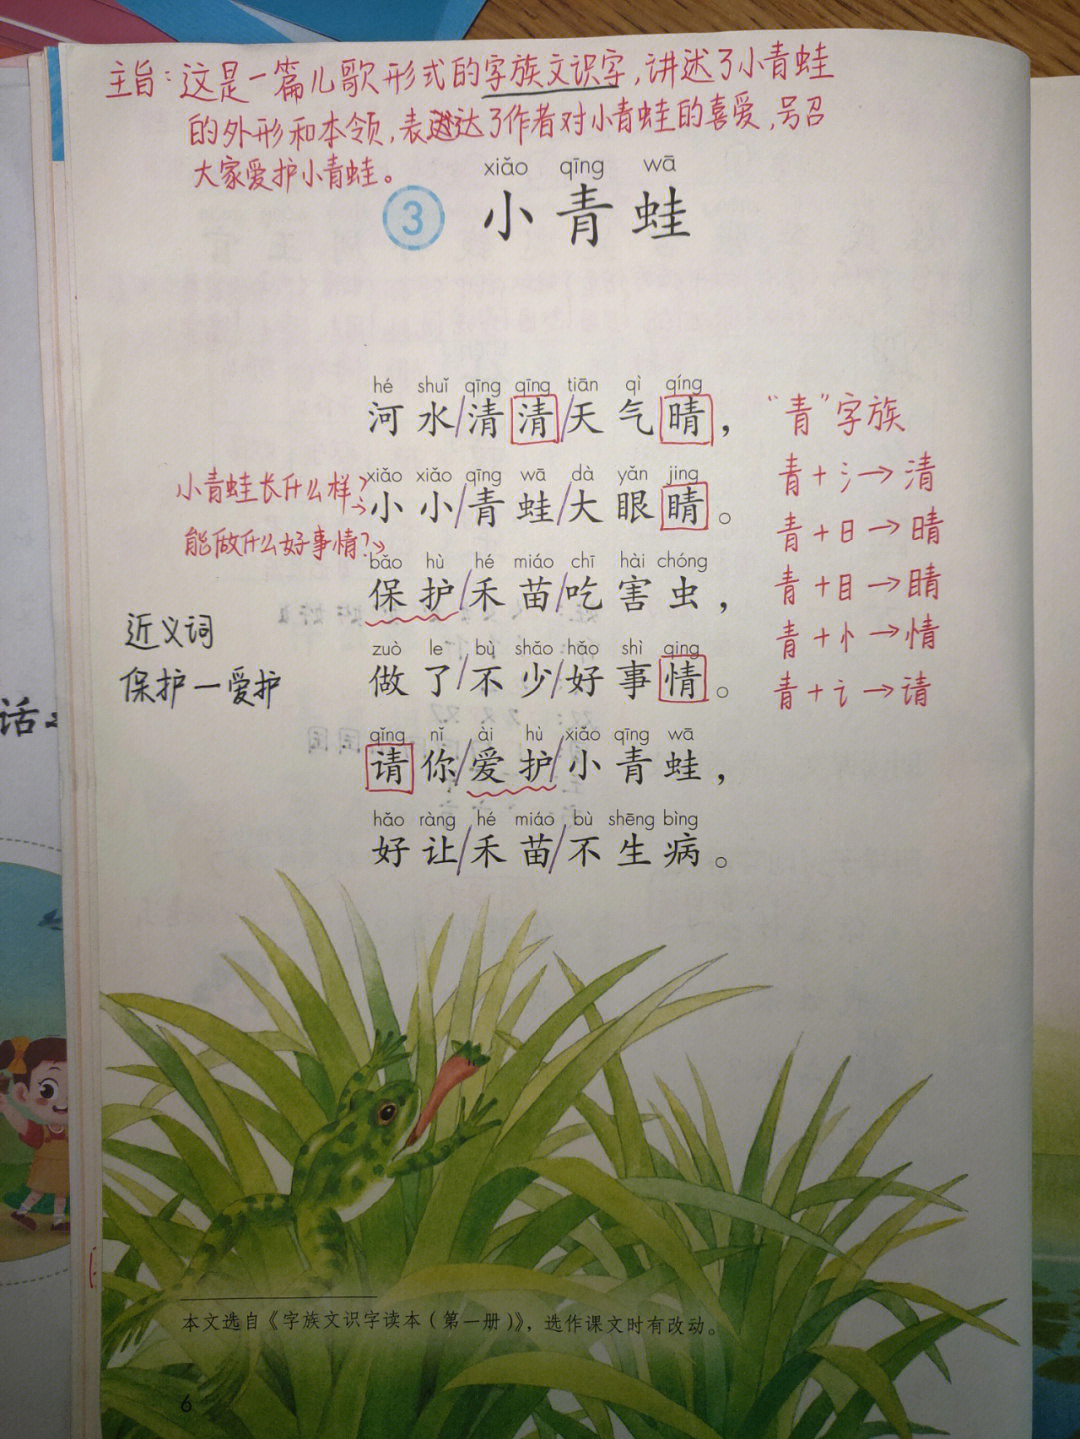 主旨：这是一篇儿歌形式的字族文识字，讲述了小青蛙
的外形和本领，表达了作者对小青蛙的喜爱，号召
大家爱护小青蛙。
xiǎo qīng wā
3 小青蛙
hé shuǐ qīng qīng tiān qì qíng
河水/清清/天气晴，
xiǎo xiǎo qīng wā dà yǎn jing
小小/青蛙/大眼睛。
bǎo hù hé miáo chī hài chóng
保护/禾苗/吃害虫，
zuò le bù shǎo hǎo shì qing
做了/不少/好事情。
qǐng nǐ ài hù xiǎo qīng wā
请你/爱护/小青蛙，
hǎo ràng hé miáo bù shēng bìng
好让/禾苗/不生病。
小青蛙长什么样？→
能做什么好事情？→
近义词
保护—爱护
“青”字族
青+氵→清
青+日→晴
青+目→睛
青+忄→情
青+讠→请
话
本文选自《字族文识字读本（第一册）》，选作课文时有改动。
6